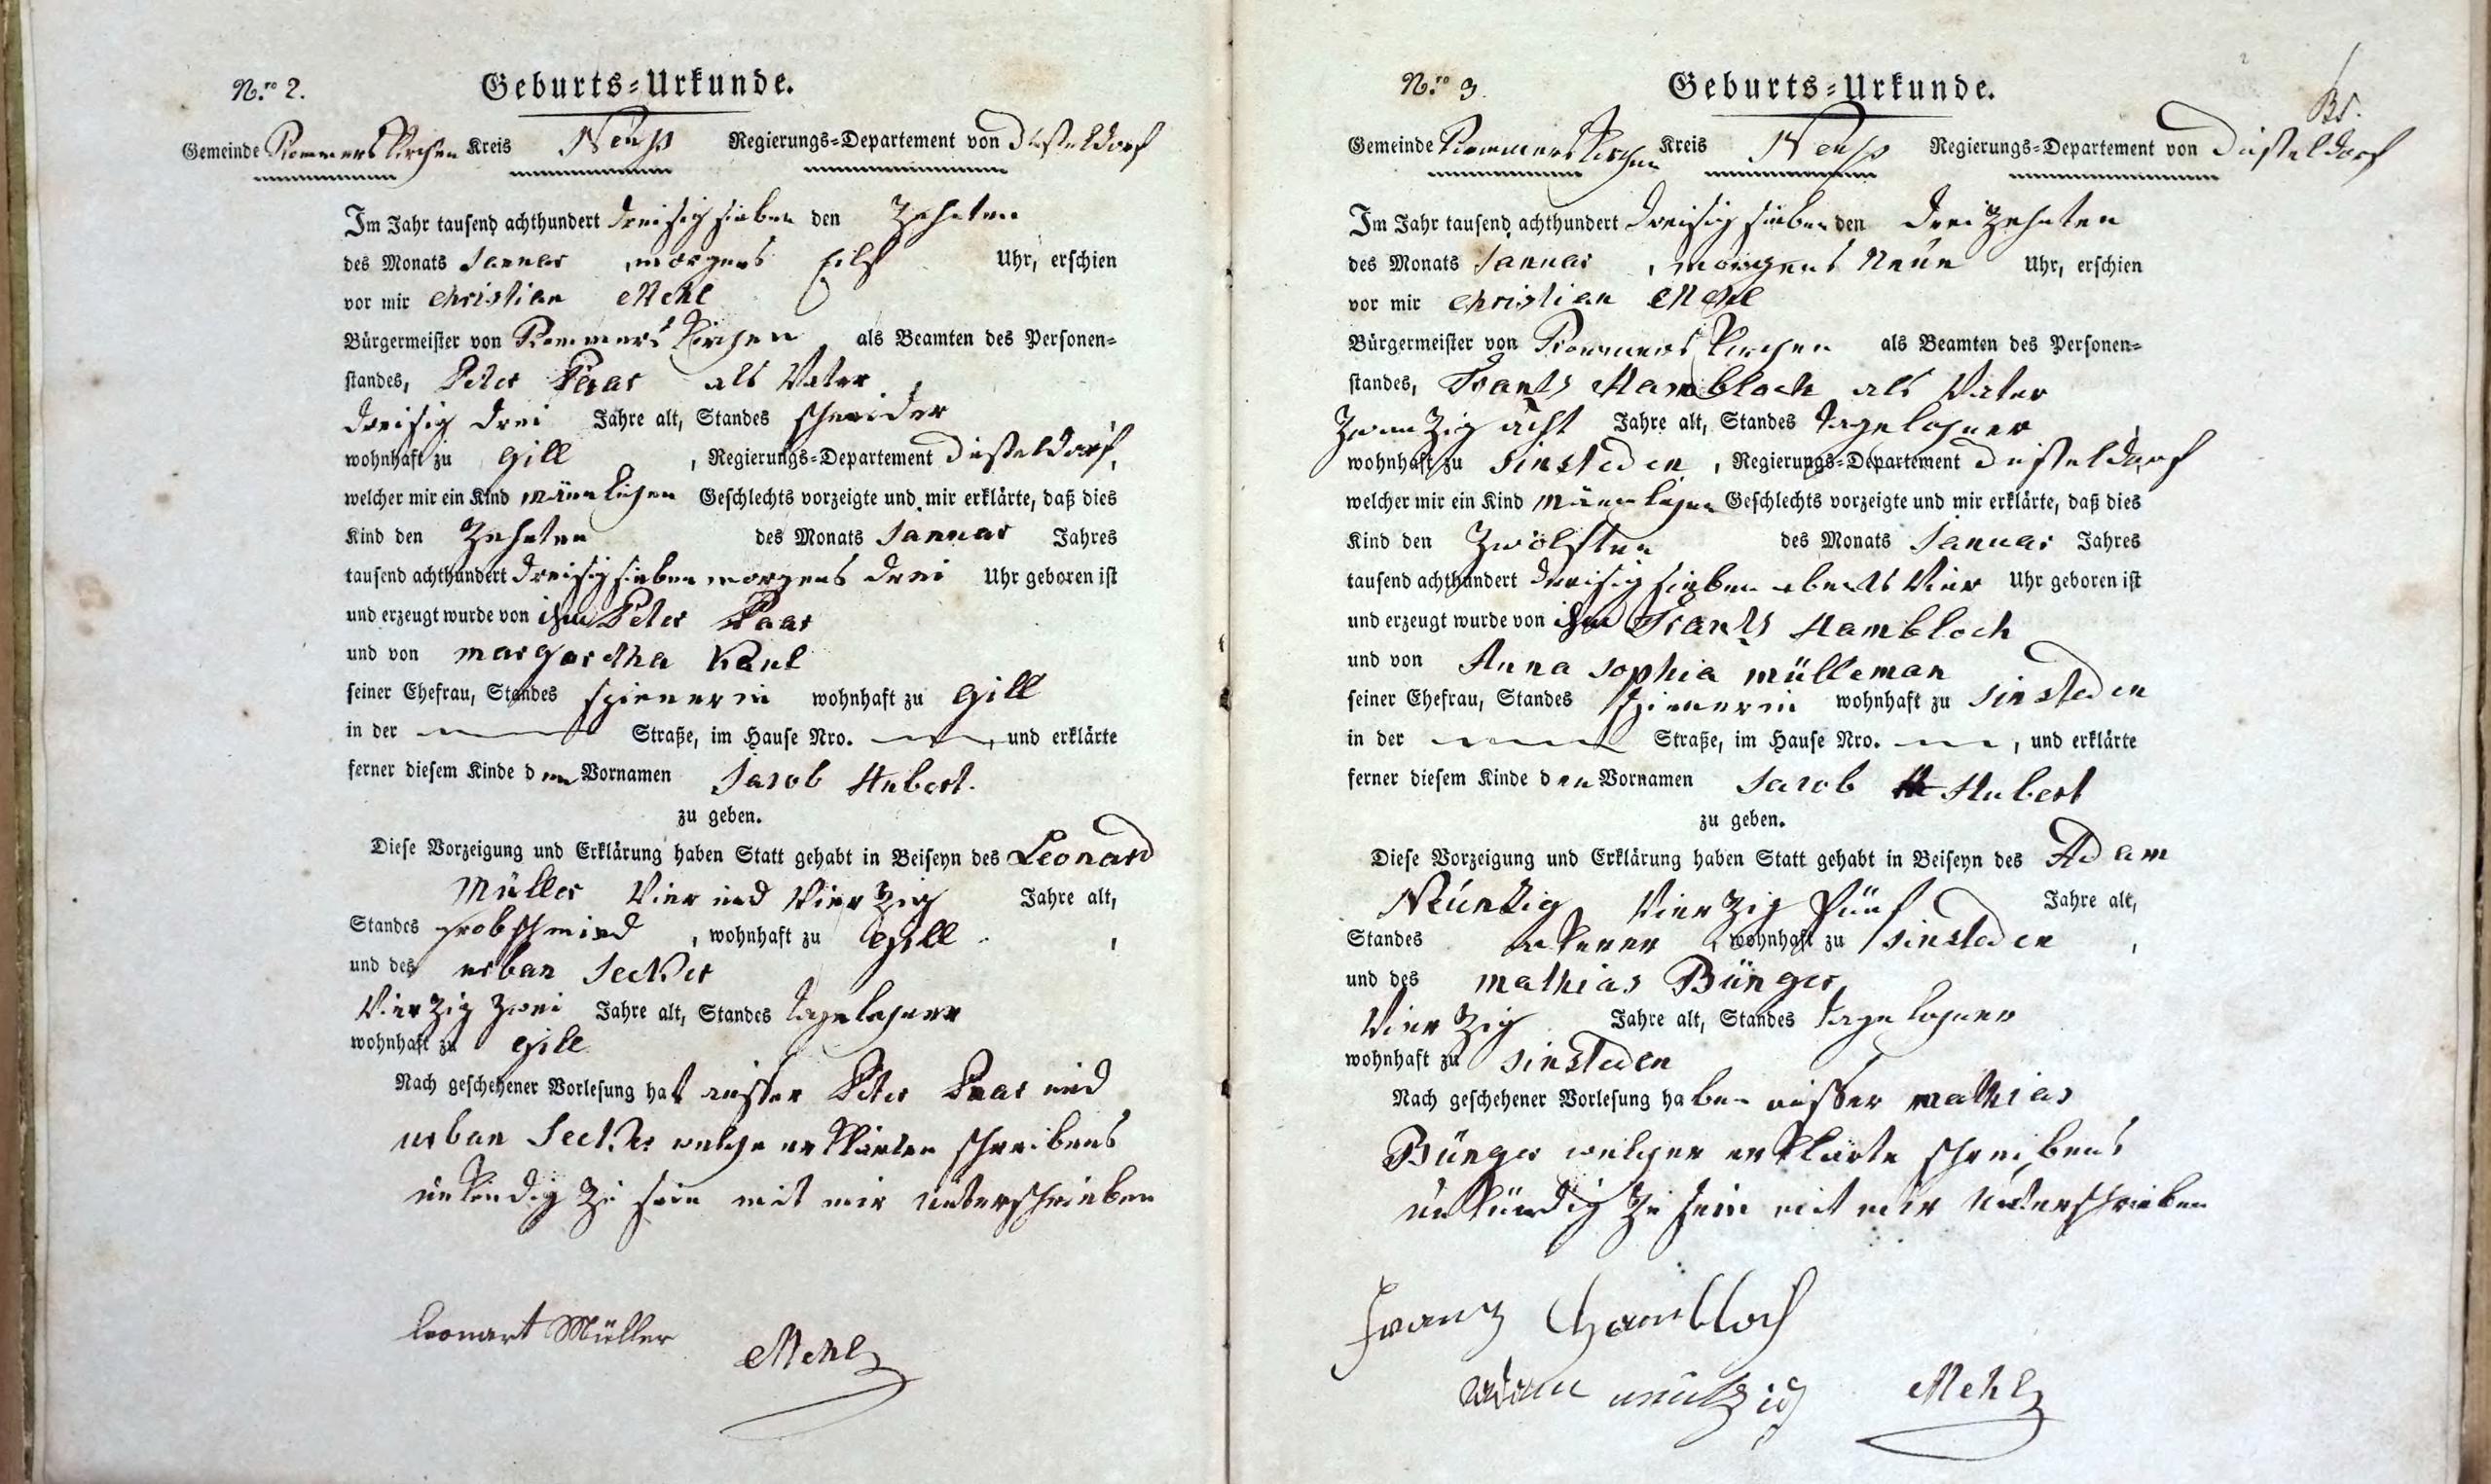 Nro 2.
Geburts-Urkunde.
Gemeinde Rommerskirchen Kreis Neuß Regierungs-Departement von Düsseldorf
Im Jahr tausend achthundert dreisig sieben den Zehnten
des Monats Januar , morgens Eilf Uhr, erschien
vor mir Christian Mehl
Bürgermeister von Rommerskirchen als Beamten des Personen-
standes, Peter Paar als Vater ,
dreisig drei Jahre alt, Standes schneider
wohnhaft zu Gill , Regierungs-Departement Düsseldorf,
welcher mir ein Kind männlichen Geschlechts vorzeigte und mir erklärte, daß dies
Kind den Zehnten des Monats Januar Jahres
tausend achthundert dreisig sieben morgens drei Uhr geboren ist
und erzeugt wurde von ihm Peter Paar
und von margaretha
seiner Ehefrau, Standes spinerin wohnhaft zu Gill
in der Straße, im Hause Nro. , und erklärte
ferner diesem Kinde den Vornamen Jacob Hubert.
zu geben.
Diese Vorzeigung und Erklärung haben Statt gehabt in Beiseyn des Leonard
Müller Vier und Vierzig Jahre alt,
Standes grobschmied , wohnhaft zu Gill . ,
und des urban
Vierzig zwei Jahre alt, Standes tagelohner
wohnhaft zu Gill
Nach geschehener Vorlesung hat ausser Peter Paar und
urban welche erklärten schreibens
unkündig zu sein mit mir unterschrieben
Leonart Müller Mehl
Nro 3.
Geburts-Urkunde.
Gemeinde Rommerskirchen Kreis Neuß Regierungs-Departement von Düsseldorf
Im Jahr tausend achthundert dreisig sieben den dreizehnten
des Monats Januar , morgens Neun Uhr, erschien
vor mir Christian Mehl
Bürgermeister von Rommerskirchen als Beamten des Personen-
standes, Frantz Hambloch als Vater
Zwanzig acht Jahre alt, Standes tagelohner ,
wohnhaft zu sinsteden , Regierungs-Departement Düsseldorf
welcher mir ein Kind männlichen Geschlechts vorzeigte und mir erklärte, daß dies
Kind den Zwölften des Monats Januar Jahres
tausend achthundert dreisig sieben abends Vier Uhr geboren ist
und erzeugt wurde von ihm Frantz Hambloch
und von Anna sophia mülleman
seiner Ehefrau, Standes spinerin wohnhaft zu sinsteden
in der Straße, im Hause Nro. , und erklärte
ferner diesem Kinde den Vornamen Jacob Hubert
zu geben.
Diese Vorzeigung und Erklärung haben Statt gehabt in Beiseyn des Adam
Neunzig Vierzig fünf Jahre alt,
Standes ackerer , wohnhaft zu sinsteden ,
und des mathias Bünger,
Vierzig Jahre alt, Standes tagelohner
wohnhaft zu sinsteden
Nach geschehener Vorlesung haben ausser mathias
Bünger welcher erklärte schreibens
unkündig zu sein mit mir unterschrieben
Franz Hambloch
adam neutzig Mehl